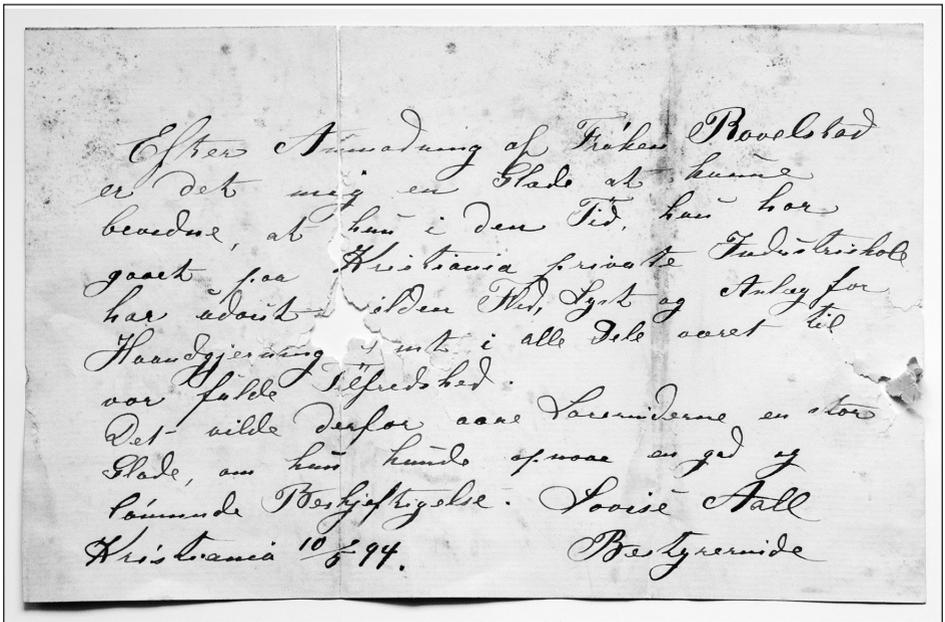 Efter Anmodning af Frøken Rovelstad
er det mig en Glæde at kunne
bevidne, at hun i den Tid, hun har
gaaet paa Kristiania private Industriskole
har udvist sjelden Flid, Lyst og Anlæg for
Haandgjerning samt i alle Dele været til
vor fulde Tilfredshed.
Det vilde derfor være Lærerinderne en stor
Glæde, om hun kunde opnaae en god og
lønnende Beskjæftigelse. Lovise Aall
Kristiania 10/5 94. Bestyrerinde